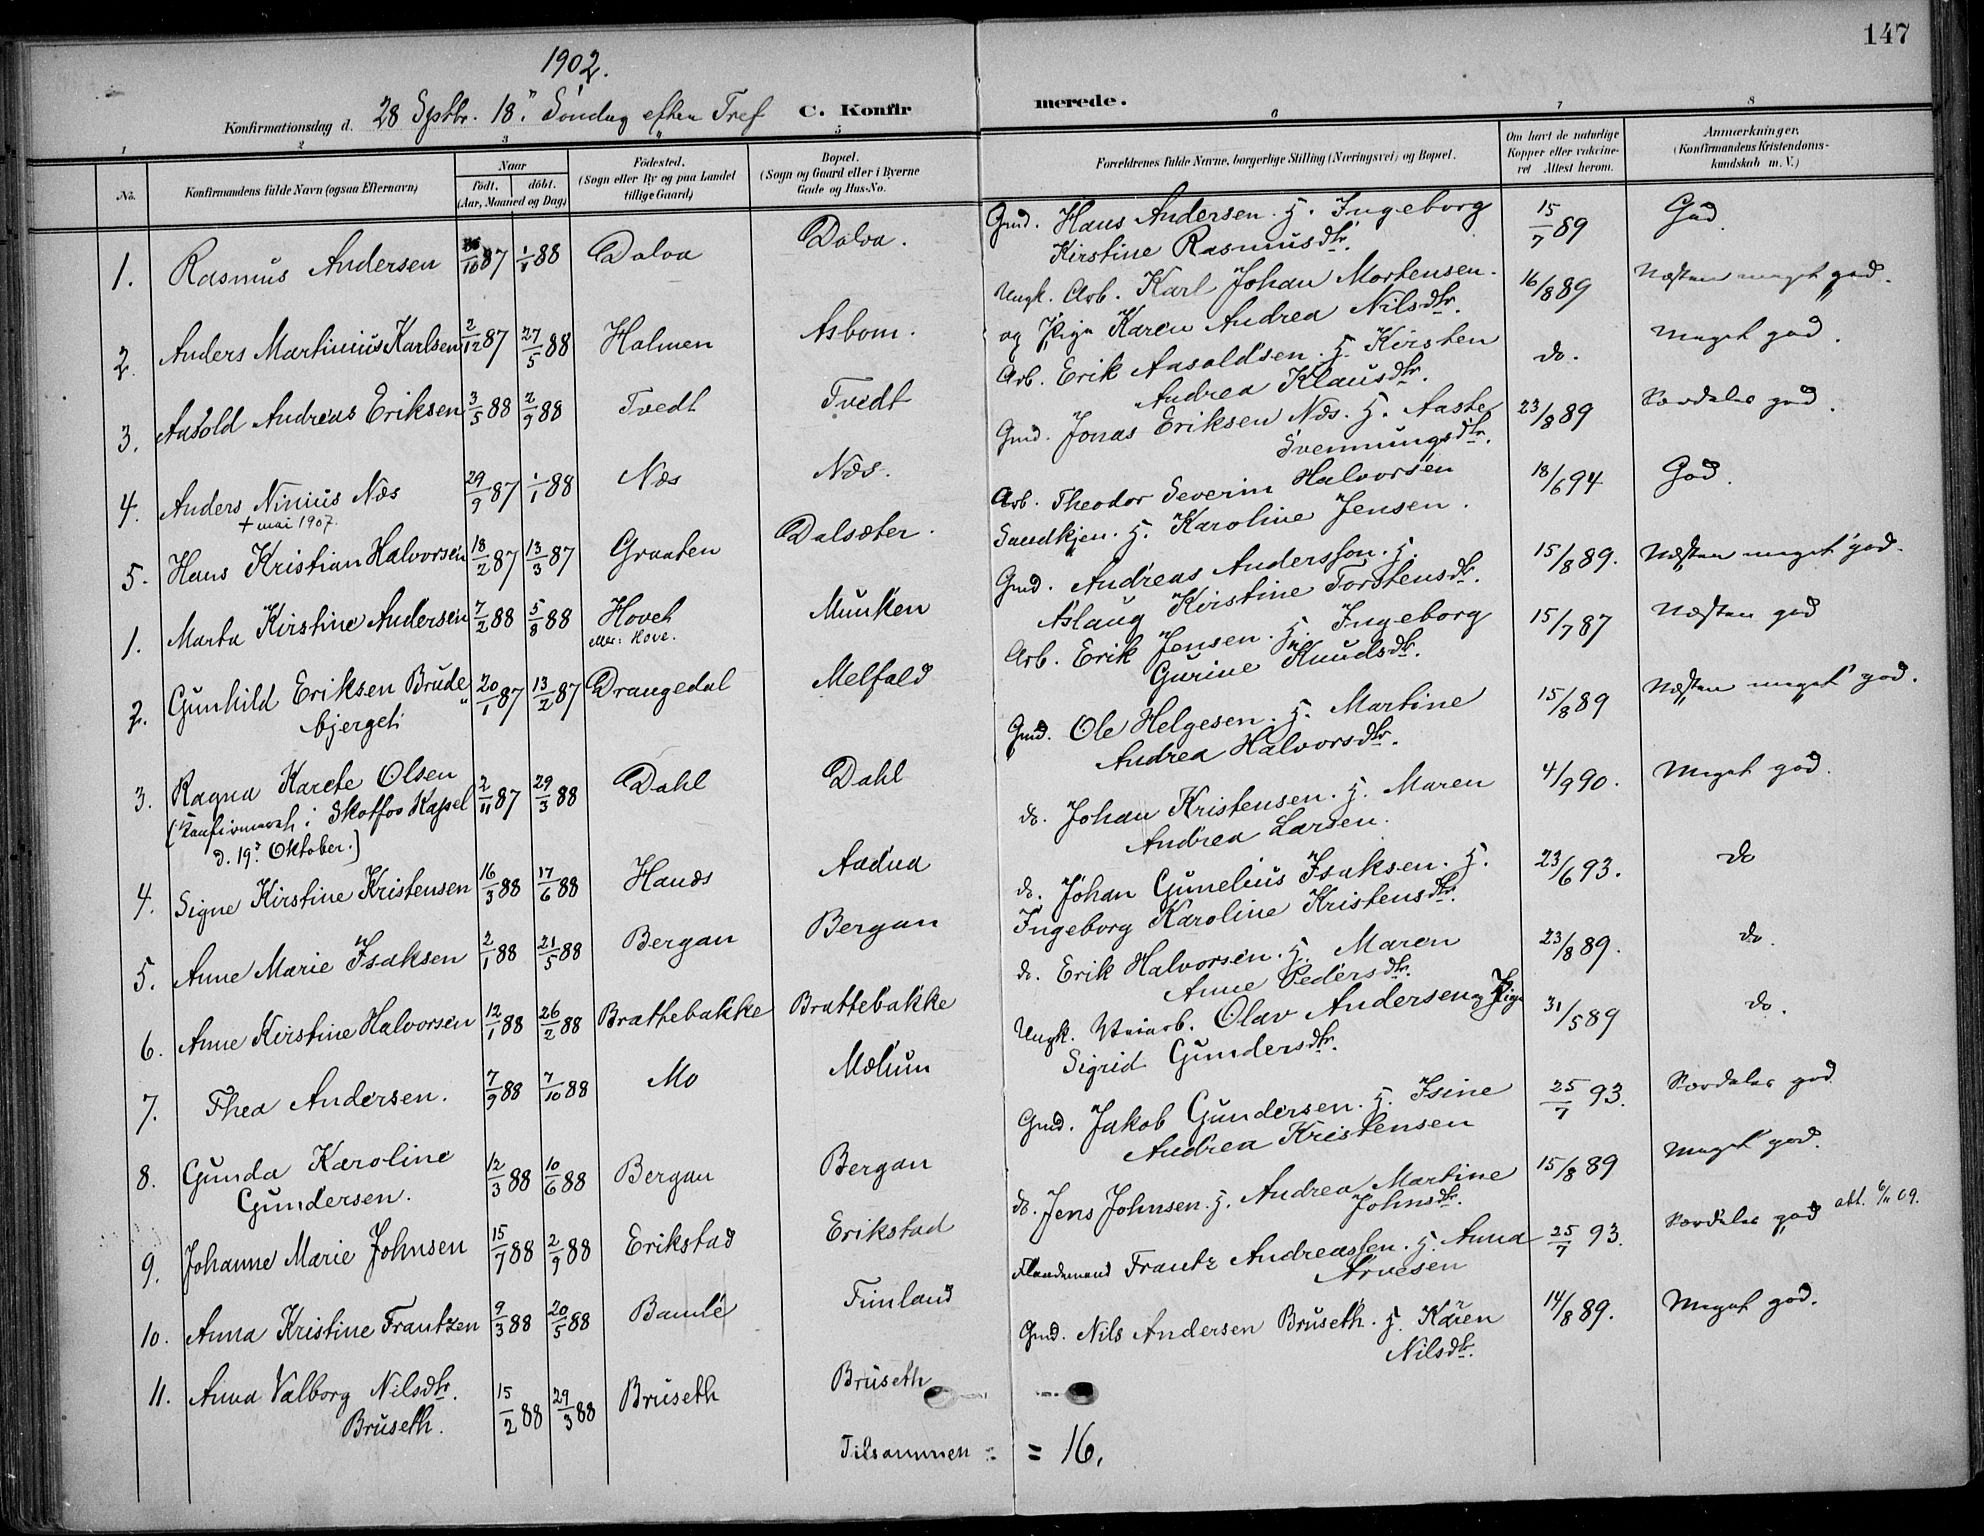 147
1902.
Konfirmationsdag d. 28 Sptbr. 18. Søndag efter Tref. C. Konfirmerede.
1 2 3 4 5 6 7 8
No. Konfirmandens fulde Navn (ogsaa Efternavn) Naar født. døbt. (Aar, Maaned og Dag) Fødested. (Sogn eller By og paa Landet tillige Gaard) Bopæl. (Sogn og Gaard eller i Byerne Gade og Hus-No. Forældrenes fulde Navne, borgerlige Stilling (Næringsvei) og Bopæl. Om havt de naturlige Kopper eller vaccineret Attest herom. Anmærkninger. (Konfirmandens Kristendomskundskab m. V.)
1. Rasmus Andersen /10 87 1/1 88 Dalva Dalva. Gmd. Hans Andersen. H. Ingeborg 15/7 89 God.
Kirstine Rasmusdtr.
2. Anders Martinius Karlsen 2/12 87 27/5 88 Holmen Asbom. Ungk. Arb. Karl Johan Mortensen. 16/8 89 Næsten meget god.
og Pige Karen Andrea Nilsdtr.
3. Aasold Andreas Eriksen 3/5 88 2/9 88 Tvedt Tvedt Arb. Erik Aasoldsen. H. Kirsten do. Meget god.
Andrea Klausdtr.
4. Anders Ninius Næs 29/9 87 1/1 88 Næs Næs. Gmd. Jonas Eriksen Næs. H. Aaste 23/8 89 Særdeles god.
Svenningsdtr.
+ mai 1907.
5. Hans Kristian Halvorsen 18/2 87 13/3 87 Graaten Dalsæter. Arb. Theodor Severin Halvorsen 18/6 94 God.
Sandkjen. H. Karoline Jensen.
1. Marta Kirstine Andersen 7/2 88 5/8 88 Hovet Munken Gmd. Andreas Andersson. H. 15/8 89. Næsten meget god.
eller: Hove.
Aslaug Kirstine Torstensdtr.
2. Gunhild Eriksen Brude„ 20/1 87 13/2 87 Drangedal Melfald Arb. Erik Jensen. H. Ingeborg 15/7 87 Næsten god
bjerget. Gurine Knudsdtr.
3. Ragna Karete Olsen 2/11 87 29/3 88 Dahl Dahl Gmd. Ole Helgesen. H. Martine 15/8 89 Næsten meget god.
Andrea Halvorsdtr.
(Konfirmeret i Skotfos Kapel
d. 19. Oktober.)
4. Signe Kirstine Kristensen 16/3 88 17/6 88 Hands Aadna do. Johan Kristensen. H. Maren 4/9 90. Meget god.
Andrea Larsen.
5. Anne Marie Isaksen 2/1 88 21/5 88 Bergan Bergan do. Johan Gunelius Isaksen. H. 23/6 93. do
Ingeborg Karoline Kristensdtr.
6. Anne Kirstine Halvorsen 12/1 88 26/2 88 Brattebakke Brattebakke do. Erik Halvorsen. H. Maren 23/8 89. do.
Anne Pedersdtr.
7. Thea Andersen. 7/9 88 7/10 88 Mo Mælum Ungk. Veiarb. Olav Andersen og Pige 31/5 89 do.
Sigrid Gundersdtr.
8. Gunda Karoline 12/3 88 10/6 88 Bergan Bergan Gmd. Jakob Gundersen. H. Isine 25/7 93. Særdeles god
Gundersen. Andrea Kristensen
9. Johanne Marie Johnsen 15/7 88 2/9 88 Erikstad Erikstad do. Jens Johnsen. H. Andrea Martine 15/8 89 Meget god.
Johnsdtr.
10. Anna Kristine Frantzen 9/3 88 20/5 88 Bamle Fimland Frantz Andreassen. H. Anna 25/7 93. Særdeles god att. 6/11 09.
Arvesen
11. Anna Valborg Nilsdtr. 15/2 88 29/3 88 Bruseth Bruseth Gmd. Nils Andersen Bruseth. H. Karen 14/8 89. Meget god.
Bruseth. Nilsdtr.
Tilsammen = = 16.